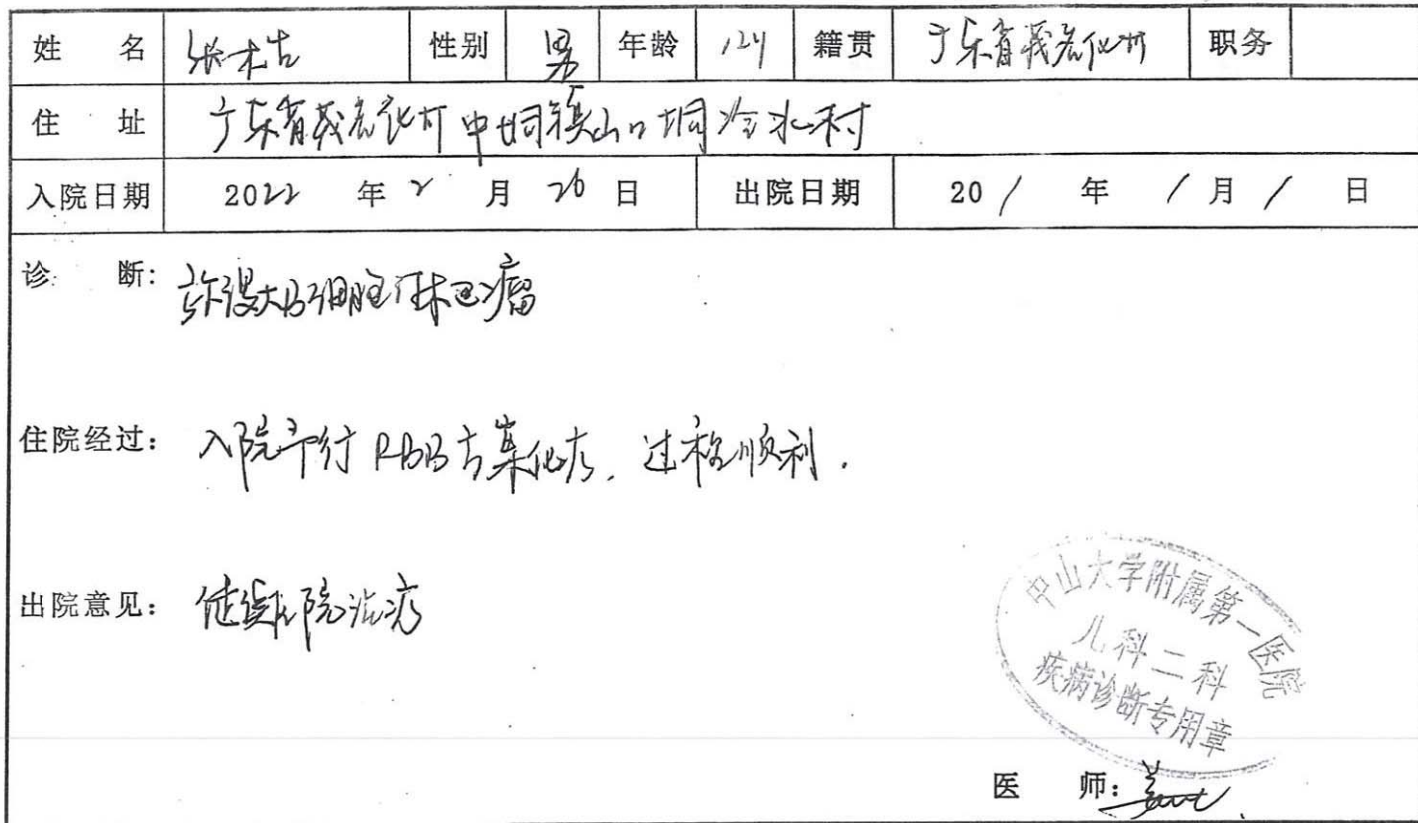 姓 名 张木吉 性别 男 年龄 12y 籍贯 广东省茂名化州 职务
住 址 广东省茂名化州中垌镇山口垌冷水村
入院日期 2022 年 2 月 26 日 出院日期 20 / 年 / 月 / 日
诊 断: 弥漫大B细胞淋巴瘤
住院经过: 入院予行 RBB方案化疗,过程顺利.
出院意见: 继续住院治疗
中山大学附属第一医院
儿科二科
疾病诊断专用章
医 师: